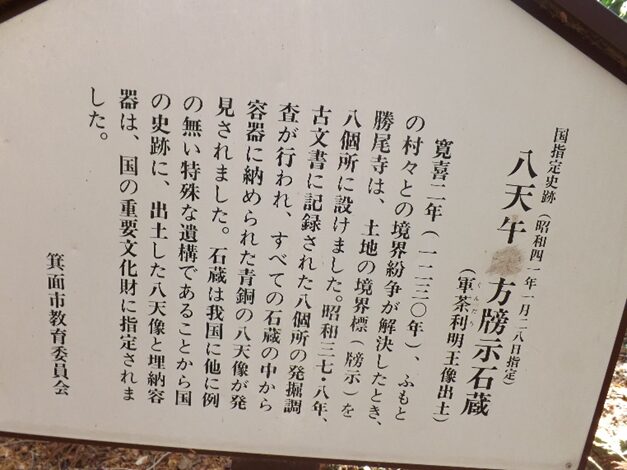 国指定史跡(昭和四一年一月二八日指定)
八天午方牓示石蔵
(軍荼利明王像出土)
ぐんだり
寛喜二年(一二三〇年)、ふもと
の村々との境界紛争が解決したとき、
勝尾寺は、土地の境界標(牓示)を
八個所に設けました。昭和三七・八年、
古文書に記録された八個所の発掘調
査が行われ、すべての石蔵の中から
容器に納められた青銅の八天像が発
見されました。石蔵は我国に他に例
の無い特殊な遺構であることから国
の史跡に、出土した八天像と埋納容
器は、国の重要文化財に指定されま
した。
箕面市教育委員会